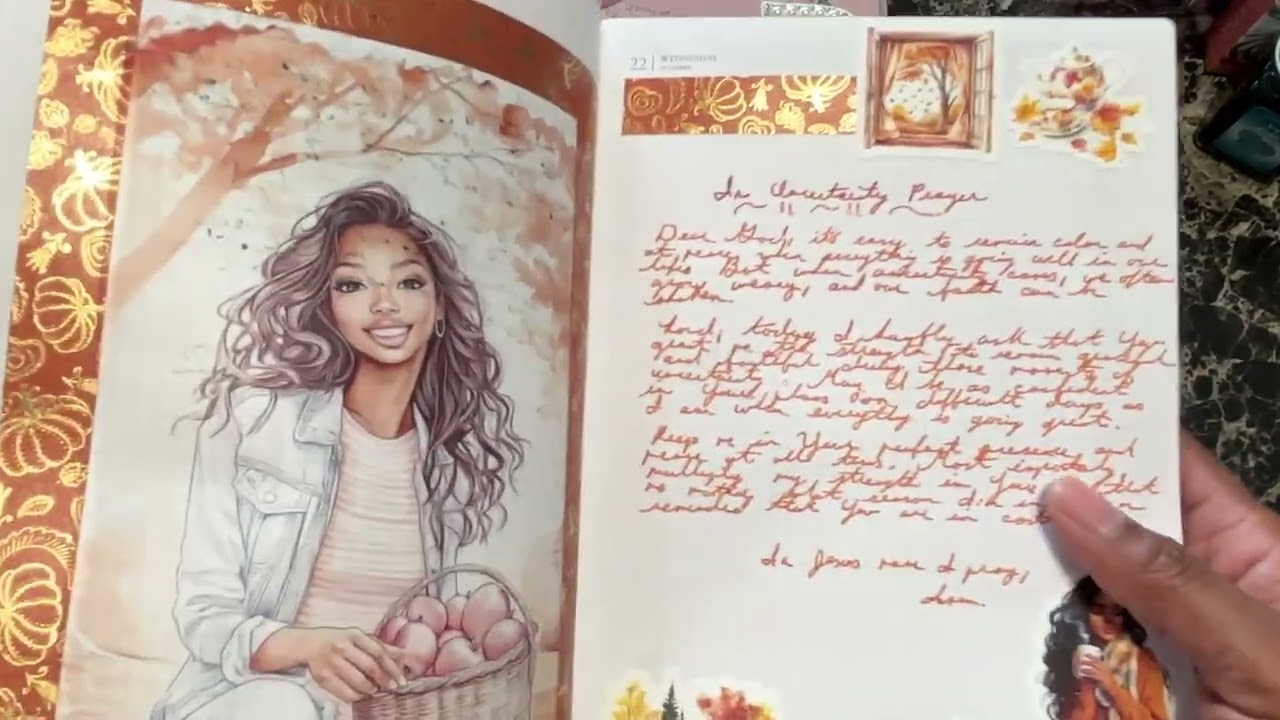 22 WEDNESDAY
In Uncertainty Prayer
Dear God, it's easy to remain calm and
at peace when everything is going well in our
lives. But when uncertainty comes, we often
grow weary, and our faith can be
shaken.
Lord, today I humbly ask that You
grant me the strength to remain grateful
and faithful during those moments of
uncertainty. May I be as confident
in Your plans on difficult days as
I am when everything is going great.
Keep me in Your perfect presence, and
peace at all times. Most importantly,
multiply my strength in You that
no matter what season I'm in
reminded that You are in
In Jesus name I pray,
Amen.